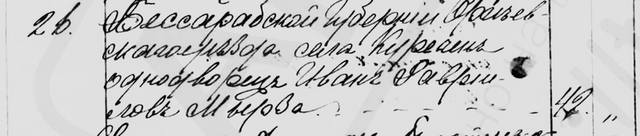 26. Бессарабской губернiи Оргѣев-
скаго уѣзда села Курлень
однодворецъ Иванъ Гаври-
ловъ Мырза. 42. „